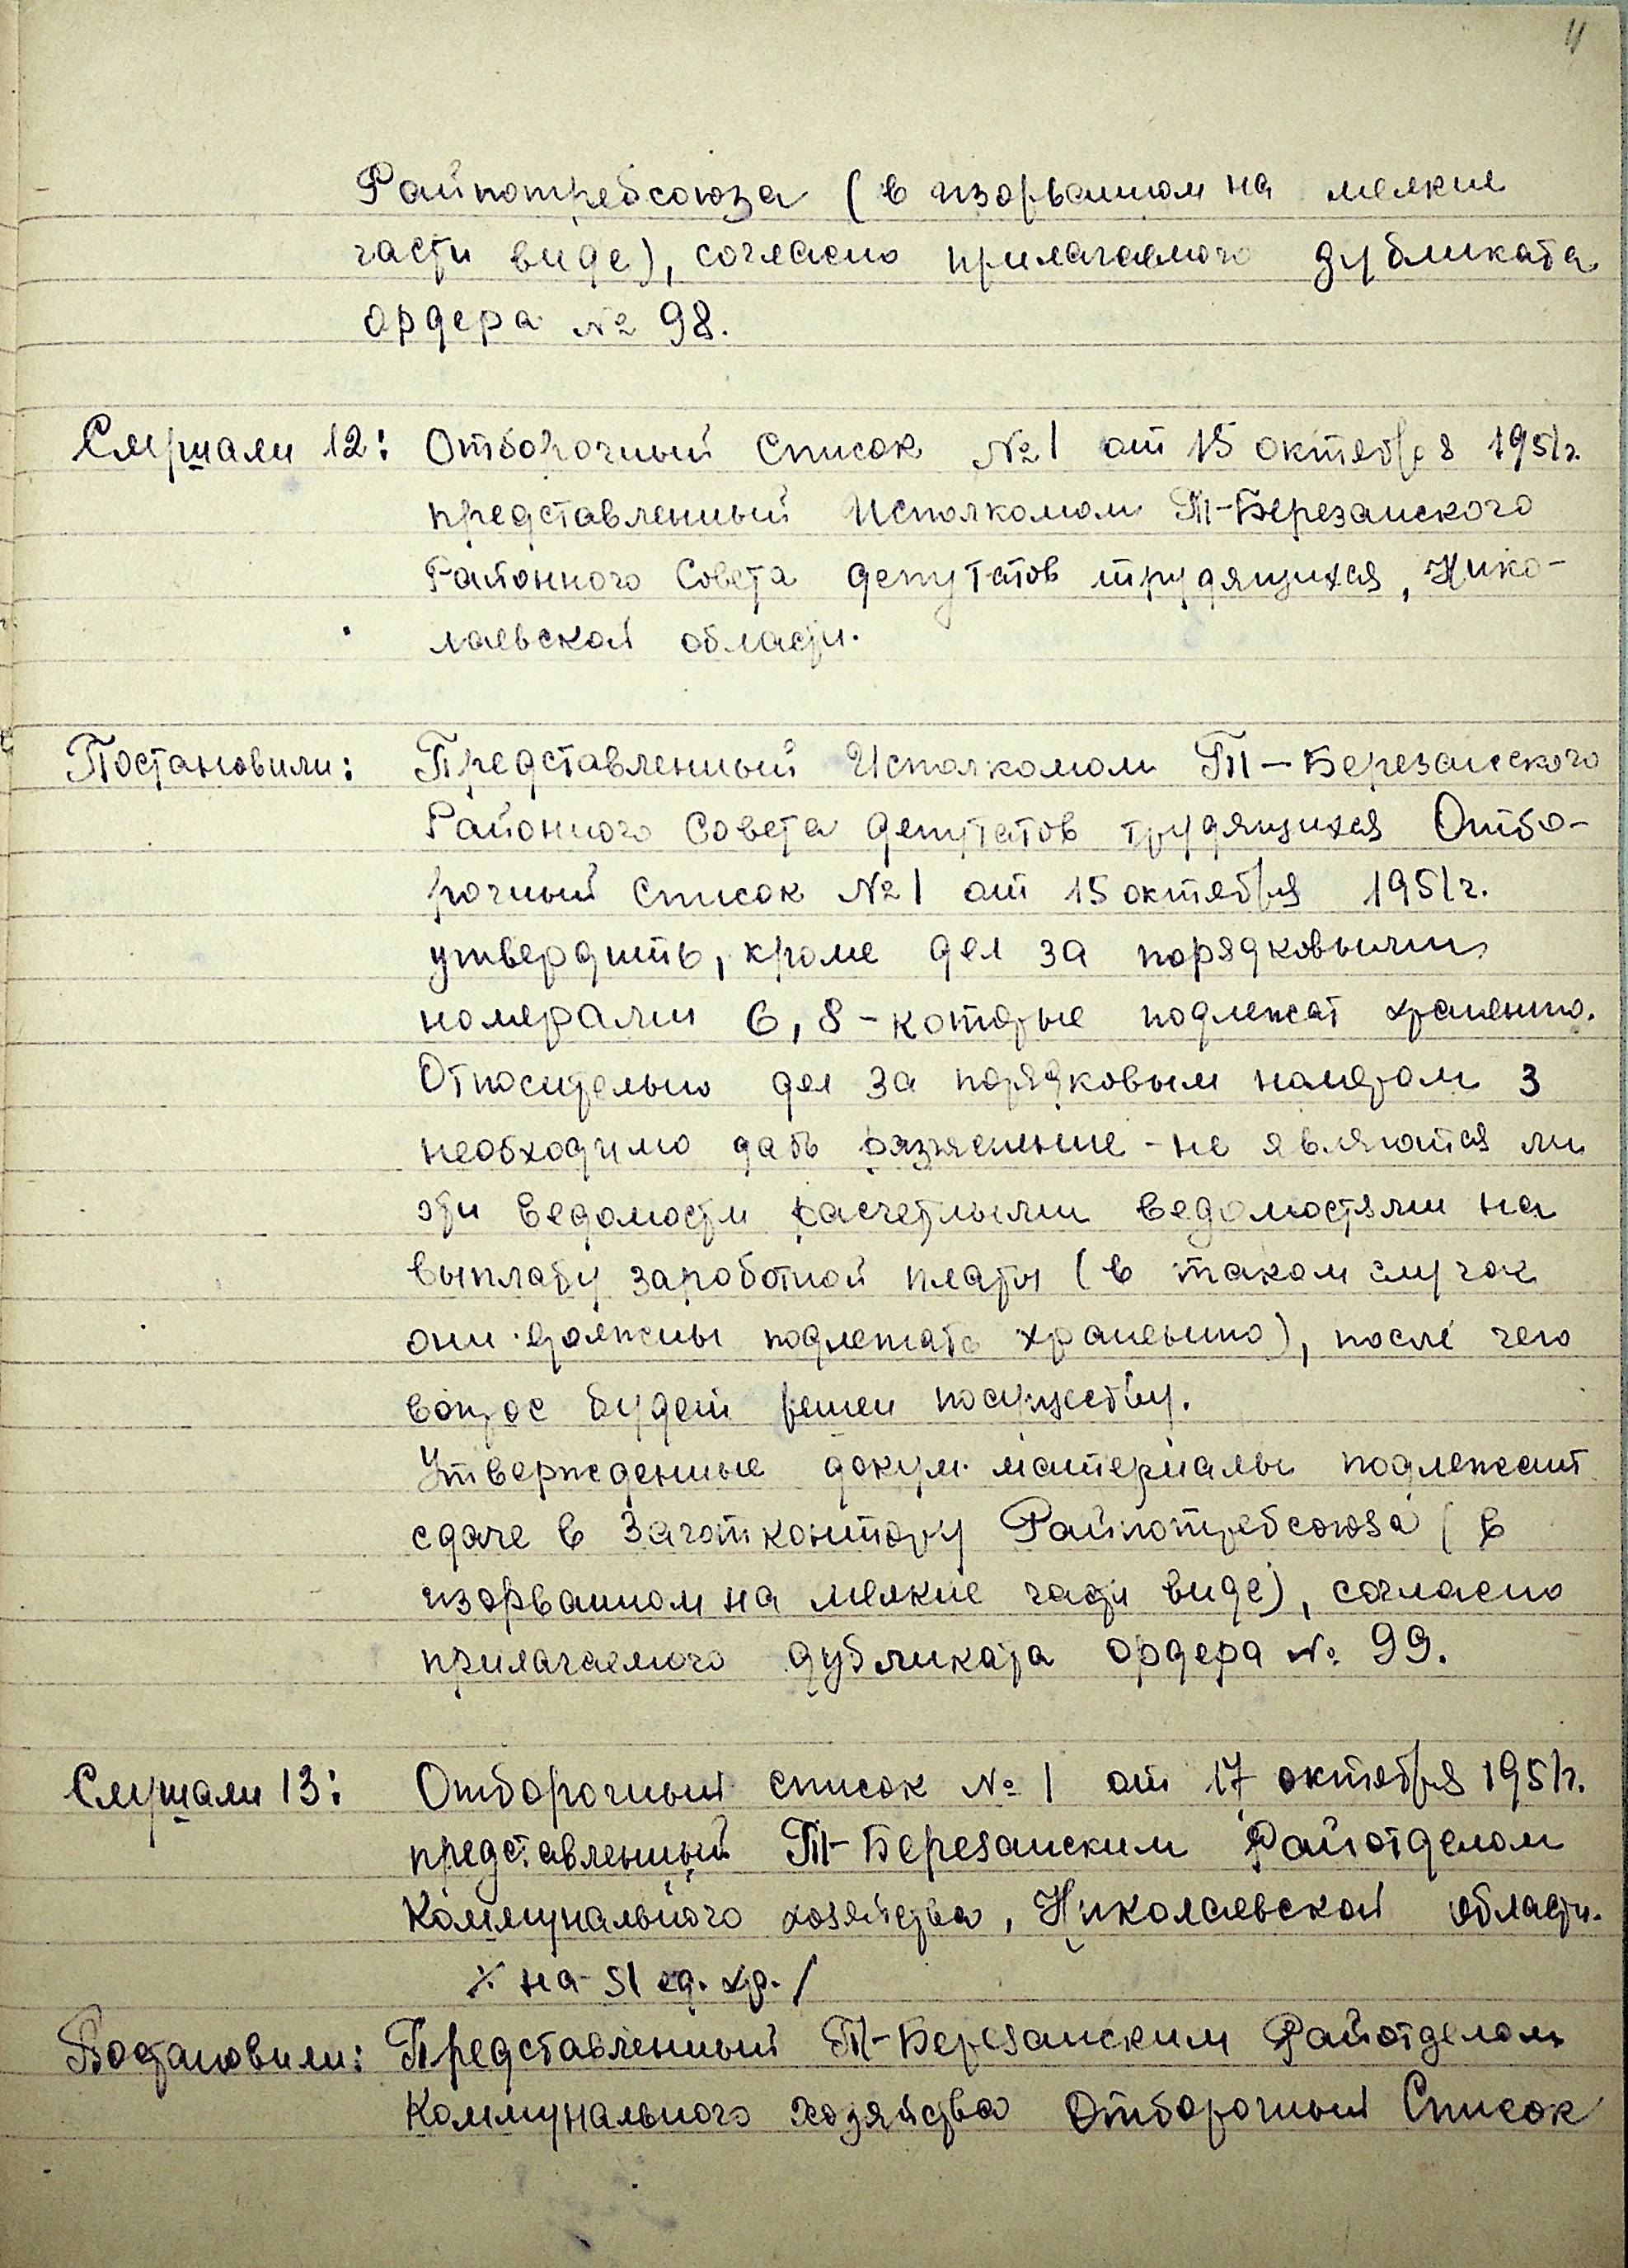 11
Райпотребсоюза (в изорванном на мелкие
части виде), согласно прилагаемого дубликата
ордера № 98.
Слушали 12: Отборочный список №1 от 15 октября 1951г.
представленный Исполкомом Т-Березанского
Районного Совета депутатов трудящихся, Нико-
лаевской области.
Постановили: Представленный Исполкомом Т-Березанского
Районного Совета депутатов трудящихся Отбо-
рочный список №1 от 15 октября 1951г.
утвердить, кроме дел за порядковыми
номерами 6, 8 - которые подлежат хранению.
Относительно дел за порядковым номером 3
необходимо дать разъяснение - не являются ли
эти ведомости расчетными ведомостями на
выплату заработной платы (в таком случае
они должны подлежать хранению), после чего
вопрос будет решен посуществу.
Утвержденные докум. материалы подлежат
сдаче в Заготконтору Райпотребсоюза (в
изорванном на мелкие части виде), согласно
прилагаемого дубликата ордера № 99.
Слушали 13: Отборочный список № 1 от 17 октября 1951г.
представленный Т-Березанским Райотделом
Коммунального хозяйства, Николаевской области.
/: на 51 ед. хр. /
Постановили: Представленный Т-Березанским Райотделом
Коммунального хозяйства Отборочный Список